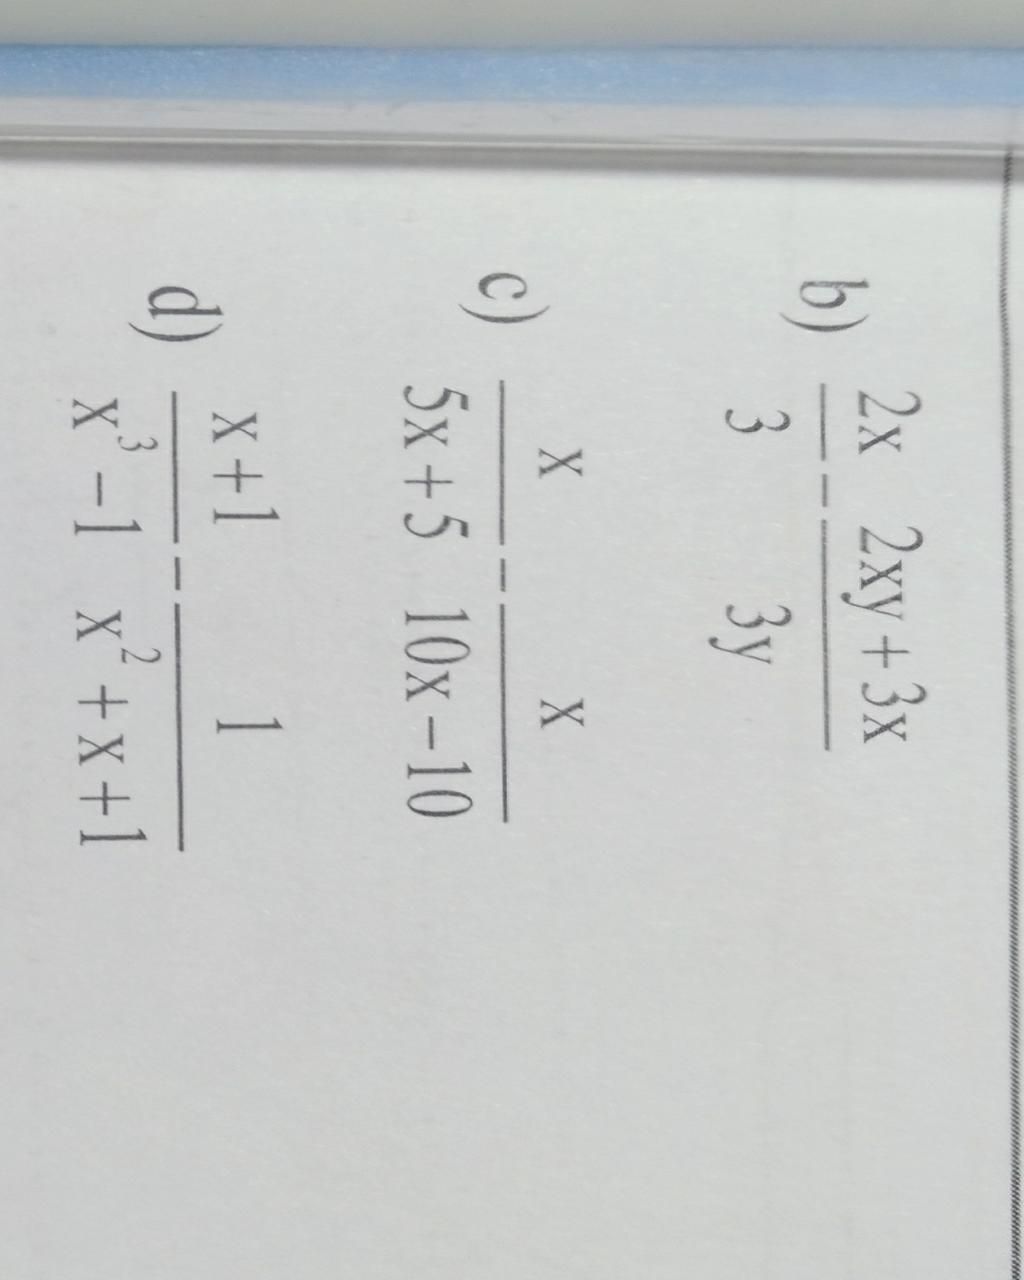 b) 2x/3 - (2xy+3x)/3y
c) x/(5x+5) - x/(10x-10)
d) (x+1)/(x³-1) - 1/(x²+x+1)